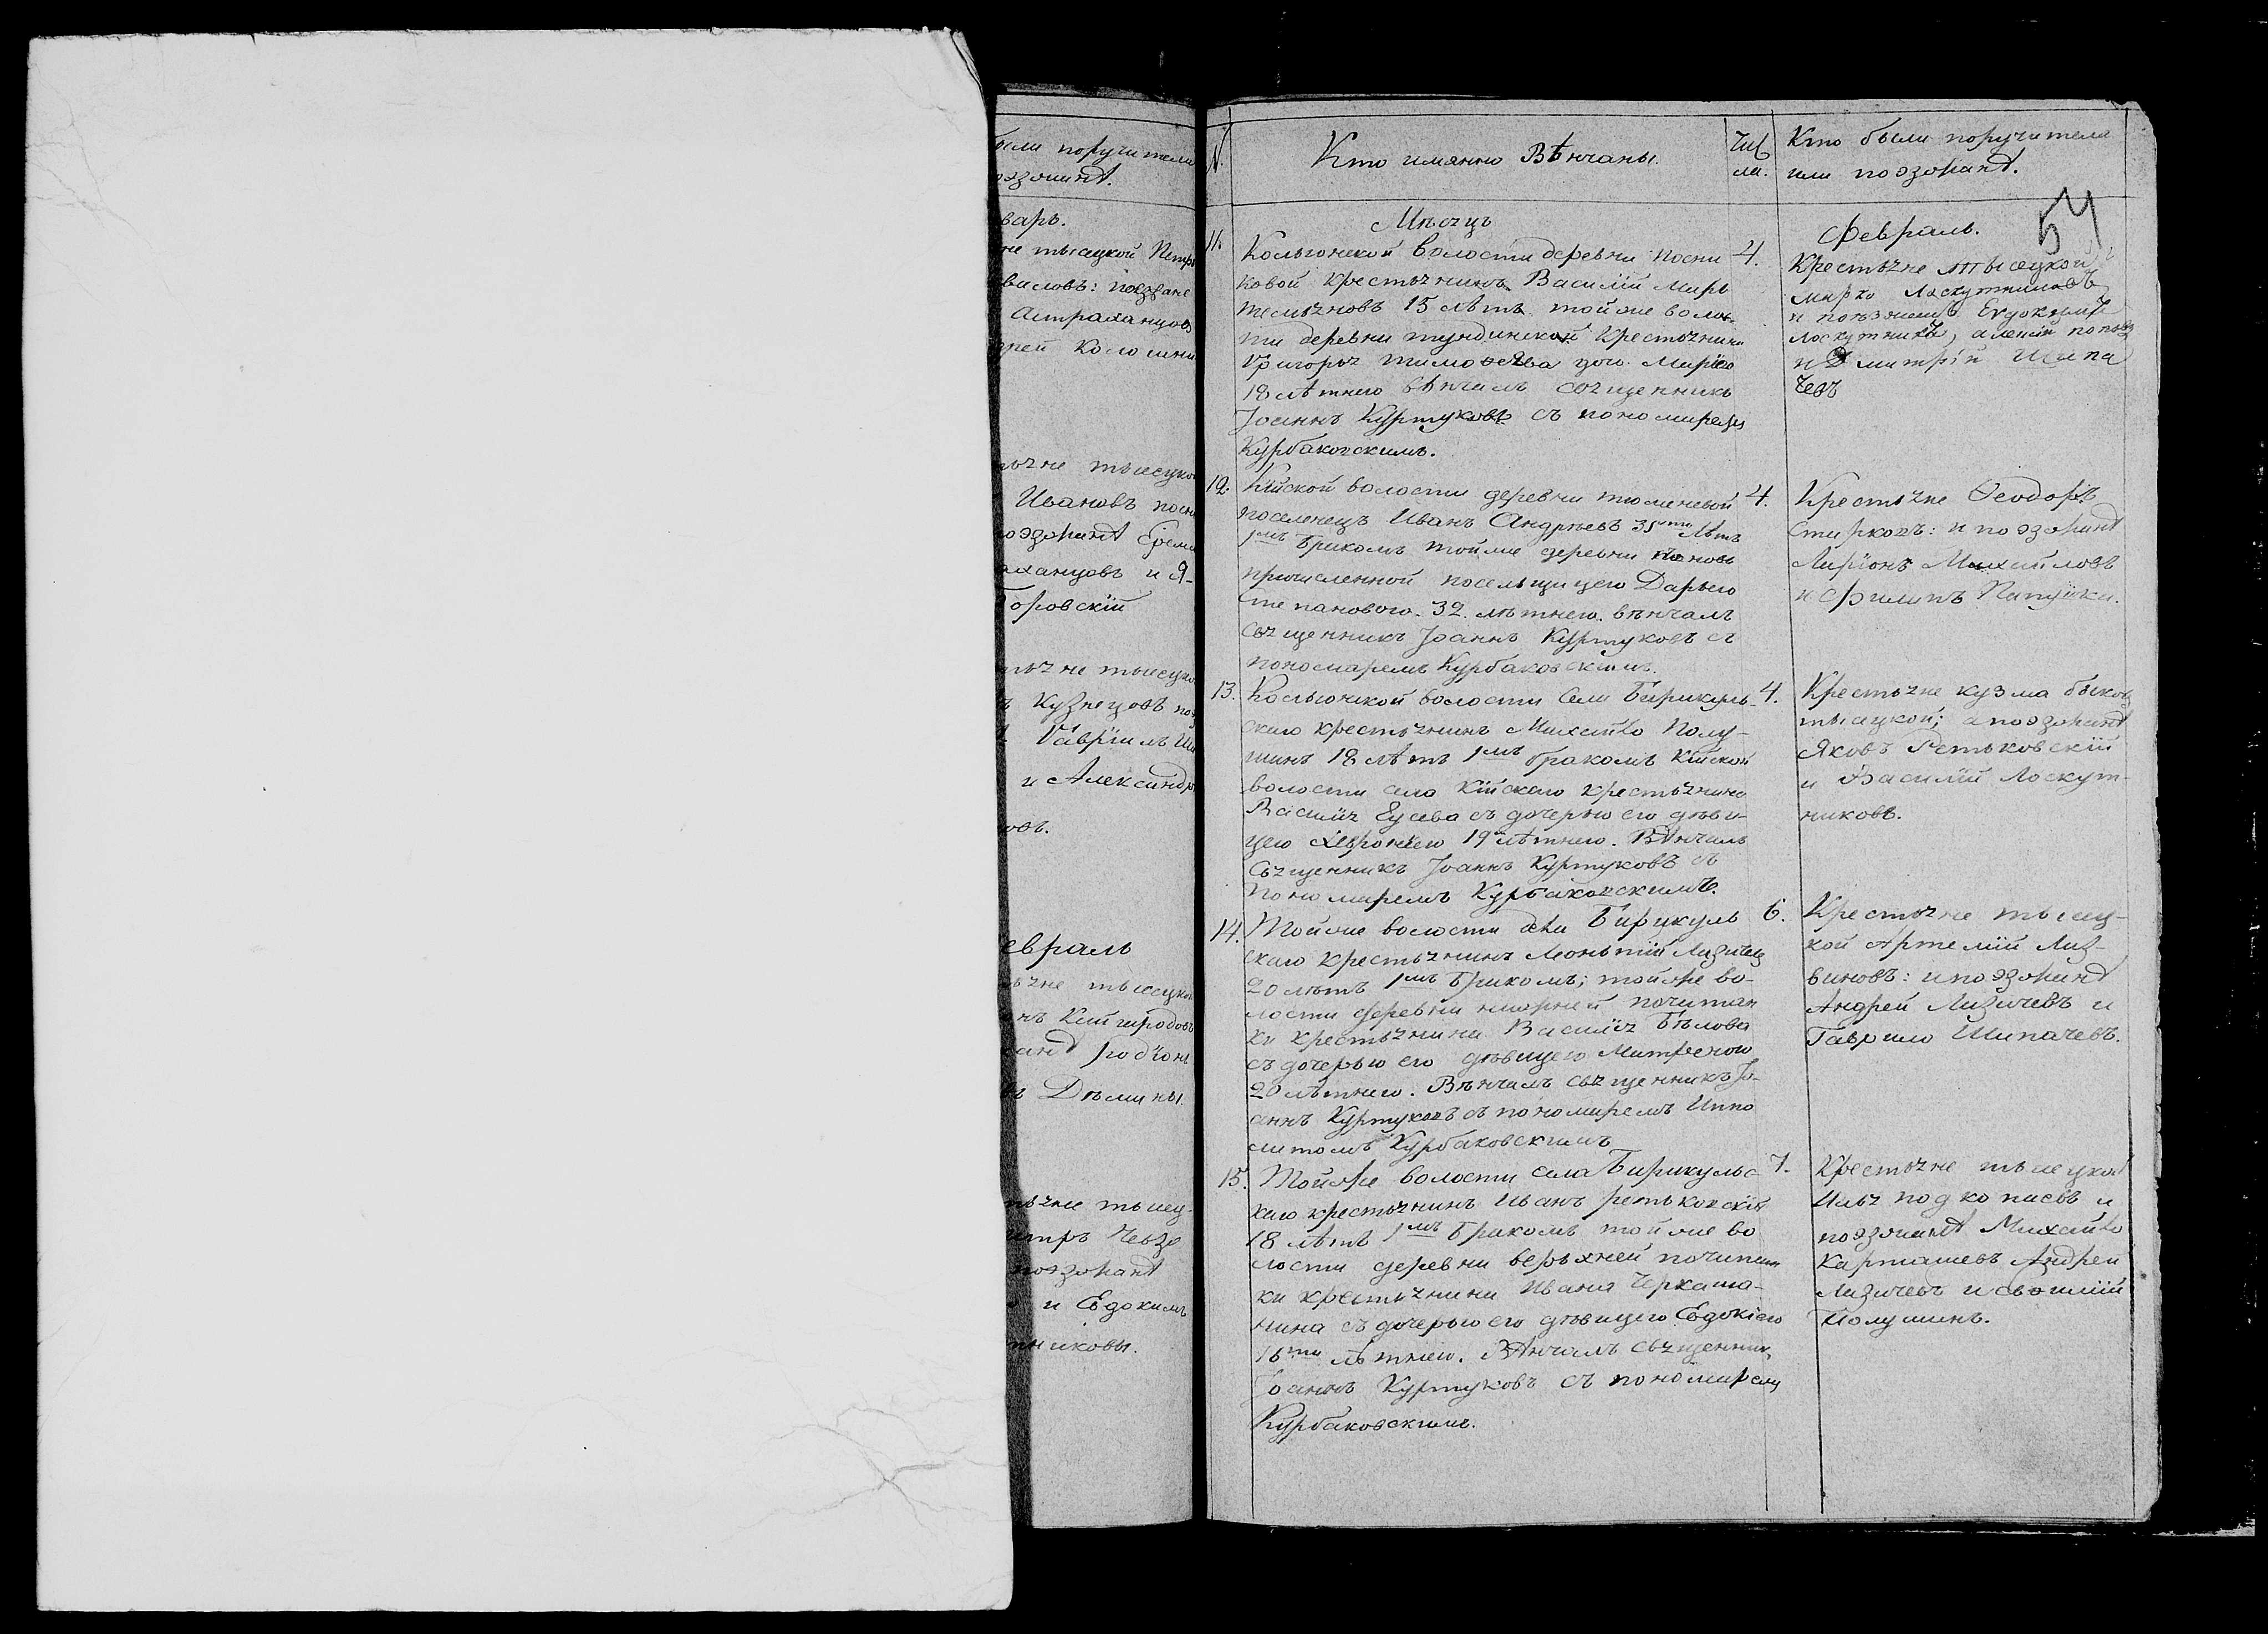 были поручители
поэзжант.
варь.
не тысецкой Петръ
виловъ: поезжане
Астраханцовъ
дрей Коломин
тьяне тысецкой
Ивановъ
поэзжант Ереме
аханцовъ и Я-
боровскій
тьяне тысецко
ъ Кузнецовъ
Гаврiилъ
и Александр
новъ.
евраль
тьяне тысецкой
нъ Кайгородовъ
Родіонъ
въ Демины.
тьяне тысец-
итръ
поэзжант
и Евдокимъ
тниковы.
N.
Кто имянно Вѣнчаны.
Чис
ла.
Кто были поручители
или поэзжант.
54
Мѣсяцъ
Февраль.
11.
Кольіонской волости деревни Посни
ковой крестьянинъ Василій Мирь
темьяновъ 15 лѣтъ тойже волос-
ти деревни тундинской Крестьянина
Григорья Тимофеева доч. Маріею
18 лѣтнею вѣнчалъ священникъ
Іоаннъ Куртуковъ съ пономаремъ
Курбаковскимъ.
4.
Крестьяне тысецкой
Марко Лоскутниковъ
и поезжане Евдокимъ
Лоскутникъ, алексѣй поповъ
и Дмитрій Шипа
чевъ
12.
Кійской волости деревни тюменевой
поселенецъ Иванъ Андреевъ 35ти лѣтъ
1мъ бракомъ тойже деревни новь
причисленной посельщицею Дарьею
Степановою. 32. лѣтнею. вѣнчалъ
священникъ Іоаннъ Куртуковъ съ
пономаремъ Курбаковскимъ.
4.
Крестьяне Ѳеодоръ
Стирковъ: и поэзжант
Лиріонъ Михайловъ
и Филипъ Папушки.
13.
Кольіонской волости села Бирикуль-
скаго крестьянинъ Михайло Полу-
шинъ 18 лѣтъ 1мъ бракомъ Кійской
волости села Кійскаго крестьянина
Василія Гусева съ дочерью его дѣви-
цею Хевроніею 19 лѣтнею. Вѣнчалъ
Священникъ Іоаннъ Куртуковъ съ
Пономаремъ Курбаковскимъ.
4.
Крестьяне кузма быковъ
тысяцкой; а поэзжант
Яковъ Ретьковскій
и Василій Лоскут-
никовъ.
14.
Тойже волости села Бирикуль
скаго крестьянинъ Леонтій Лизичевъ
20 лѣтъ 1мъ бракомъ; тойже во-
лости деревни нижней почитан
ки крестьянина Василія Бѣлова
съ дочерью его дѣвицею Матреною
20 лѣтнею. Вѣнчалъ священникъ Іо-
аннъ Куртуковъ съ пономаремъ Иппо
литомъ Курбаковскимъ
6.
Крестьяне тысец-
кой Артемій Лиз-
виновъ: и поэзжант
Андрей Лизичевъ и
Гаврило Шипачевъ.
15.
Тойже волости села Бирикульс
каго крестьянинъ Иванъ ретьковскій
18 лѣтъ 1мъ бракомъ тойже во
лости деревни верьхней почитан
ки крестьянина Ивана Черкаша-
нина съ дочерью его дѣвицею Евдокіею
16ти лѣтнею. Вѣнчалъ священникъ
Іоаннъ Куртуковъ съ пономаремъ
Курбаковскимъ.
7.
Крестьяне тысецкой
Илья подкопаевъ и
поэзжант Михайло
Карташевъ Андрей
Лизичевъ и
Полушинъ.